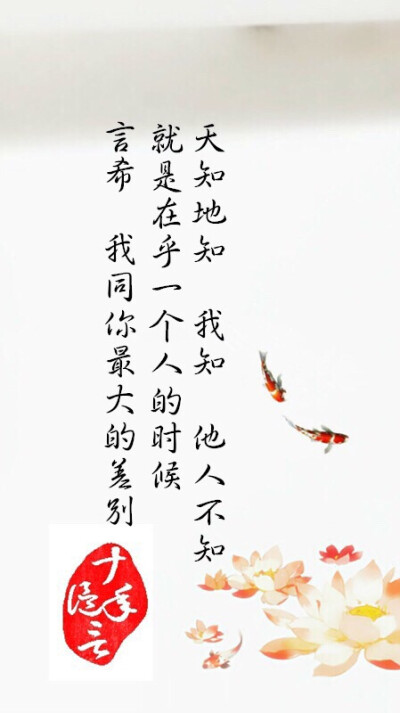 言希 我同你最大的差别
就是在乎一个人的时候
天知地知 我知 他人不知
十年
言